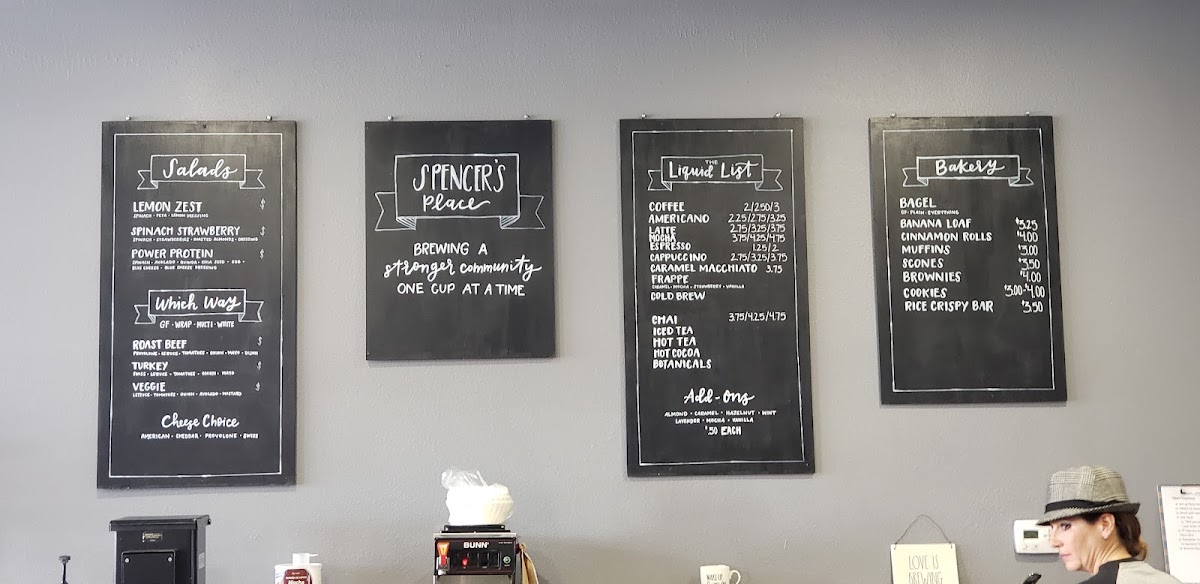 Salads
LEMON ZEST $
SPINACH · FETA · LEMON DRESSING
SPINACH STRAWBERRY $
SPINACH · STRAWBERRIES · ROASTED ALMONDS · DRESSING
POWER PROTEIN $
SPINACH · AVOCADO · QUINOA · CHIA SEED · EGG ·
BLUE CHEESE · BLUE CHEESE DRESSING
Which Way
GF · WRAP · MULTI · WHITE
ROAST BEEF $
PROVOLONE · LETTUCE · TOMATOES · ONION · MAYO · DIJON
TURKEY $
SWISS · LETTUCE · TOMATOES · ONION · MAYO
VEGGIE $
LETTUCE · TOMATOES · ONION · AVOCADO · MUSTARD
Cheese Choice
AMERICAN · CHEDDAR · PROVOLONE · SWISS
SPENCER'S
Place
BREWING A
stronger community
ONE CUP AT A TIME
THE
Liquid List
COFFEE 2/2.50/3
AMERICANO 2.25/2.75/3.25
LATTE 2.75/3.25/3.75
MOCHA 3.75/4.25/4.75
ESPRESSO 1.25/2
CAPPUCCINO 2.75/3.25/3.75
CARAMEL MACCHIATO 3.75
FRAPPE
CARAMEL · MOCHA · STRAWBERRY · VANILLA
COLD BREW
CHAI 3.75/4.25/4.75
ICED TEA
HOT TEA
HOT COCOA
BOTANICALS
Add-Ons
ALMOND · CARAMEL · HAZELNUT · MINT
LAVENDER · MOCHA · VANILLA
$.50 EACH
Bakery
BAGEL
GF · PLAIN · EVERYTHING
BANANA LOAF $3.25
CINNAMON ROLLS $4.00
MUFFINS $3.00
SCONES $3.50
BROWNIES $4.00
COOKIES $3.00-$4.00
RICE CRISPY BAR $3.50
BUNN
LOVE IS
BREWING